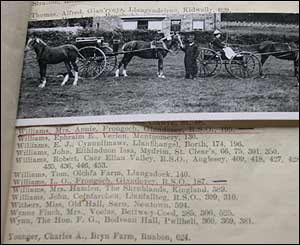 Thomas, Alfred, Glan'rynys, Llangyndeirn, Kidwelly, 619.
Williams, Mrs. Annie, Frongoch, Glanderey, R.S.O., 195.
Williams, Ephraim E., Verlon, Montgomery, 130.
Williams, E. J., Cynnullmawr, Llanfihangel, Borth, 174, 196.
Williams, John, Elthinduon Issa, Mydrim, St. Clear's, 66, 73, 301, 350.
Williams, Robert, Caer Elian Valley, R.S.O., Anglesey, 409, 418, 427, 428,
435, 436, 446, 453.
Williams, Tom, Olchfa Farm, Llangadock, 140.
Williams, I. O., Frongoch, Glanderey, R.S.O., 187.
Williams, Mrs. Hamlen, The Shrublands, Kingland, 589.
Williams, John, Llanfallteg, 309, 310.
Withers, Miss, Old Hall, Sarn, Newtown, 594.
Wynne Finch, Mrs., Voelas, Bettws-y-Coed, 285, 500, 525.
Wynn, The Hon. F. G., Bodvean Hall, Pwllheli, 360, 369, 381.
Younger, Charles A., Bryn Farm, Ruabon, 624.